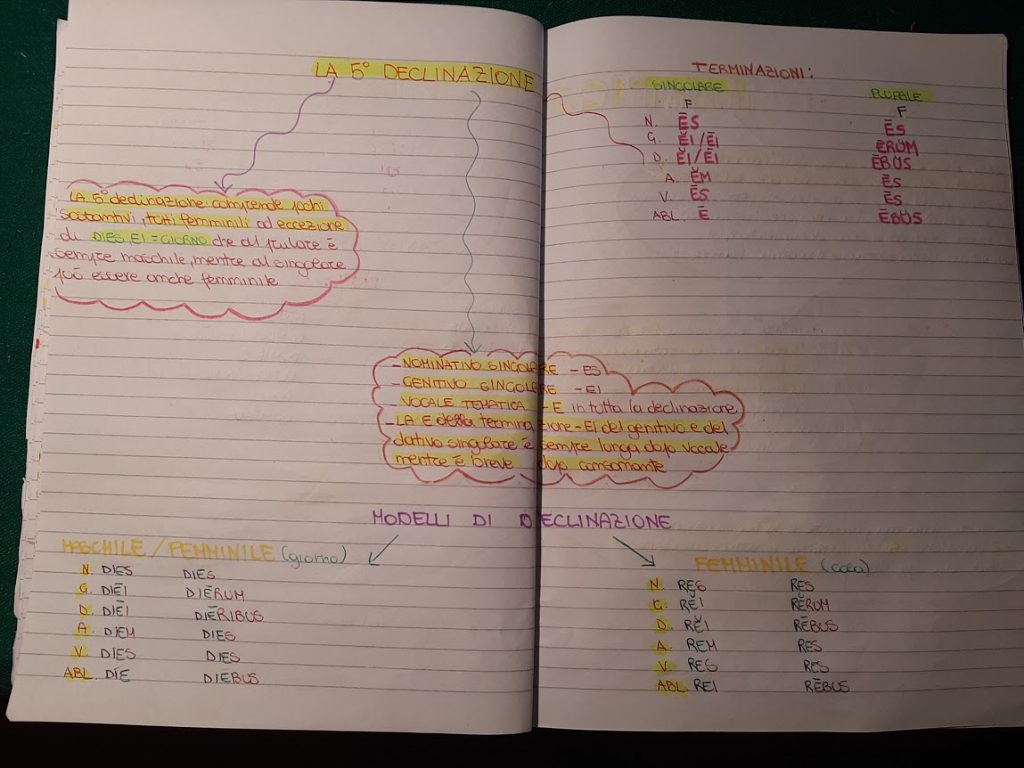 LA 5° DECLINAZIONE
LA 5° declinazione comprende pochi
sostantivi, tutti femminili ad eccezione
di DIES, EI = GIORNO che al plurale è
sempre maschile, mentre al singolare
può essere anche femminile
TERMINAZIONI:
SINGOLARE PLURALE
F F
N. ĒS ĒS
G. ĔI/ĒI ĒRUM
D. ĔI/ĒI ĒBUS
A. ĔM ĒS
V. ĒS ĒS
ABL. Ē ĒBUS
- NOMINATIVO SINGOLARE - ES
- GENITIVO SINGOLARE - EI
- VOCALE TEMATICA - E in tutta la declinazione
- LA E della terminazione - EI del genitivo e del
dativo singolare è sempre lunga dopo vocale
mentre è breve dopo consonante
MODELLI DI DECLINAZIONE
MASCHILE / FEMMINILE (giorno)
N. DIES DIES
G. DIĒI DIĒRUM
D. DIĒI DIĒRIBUS
A. DIEM DIES
V. DIES DIES
ABL. DIE DIEBUS
FEMMINILE (cosa)
N. RES RES
G. RĔI RĒRUM
D. RĔI RĒBUS
A. REM RES
V. RES RES
ABL. REI RĒBUS